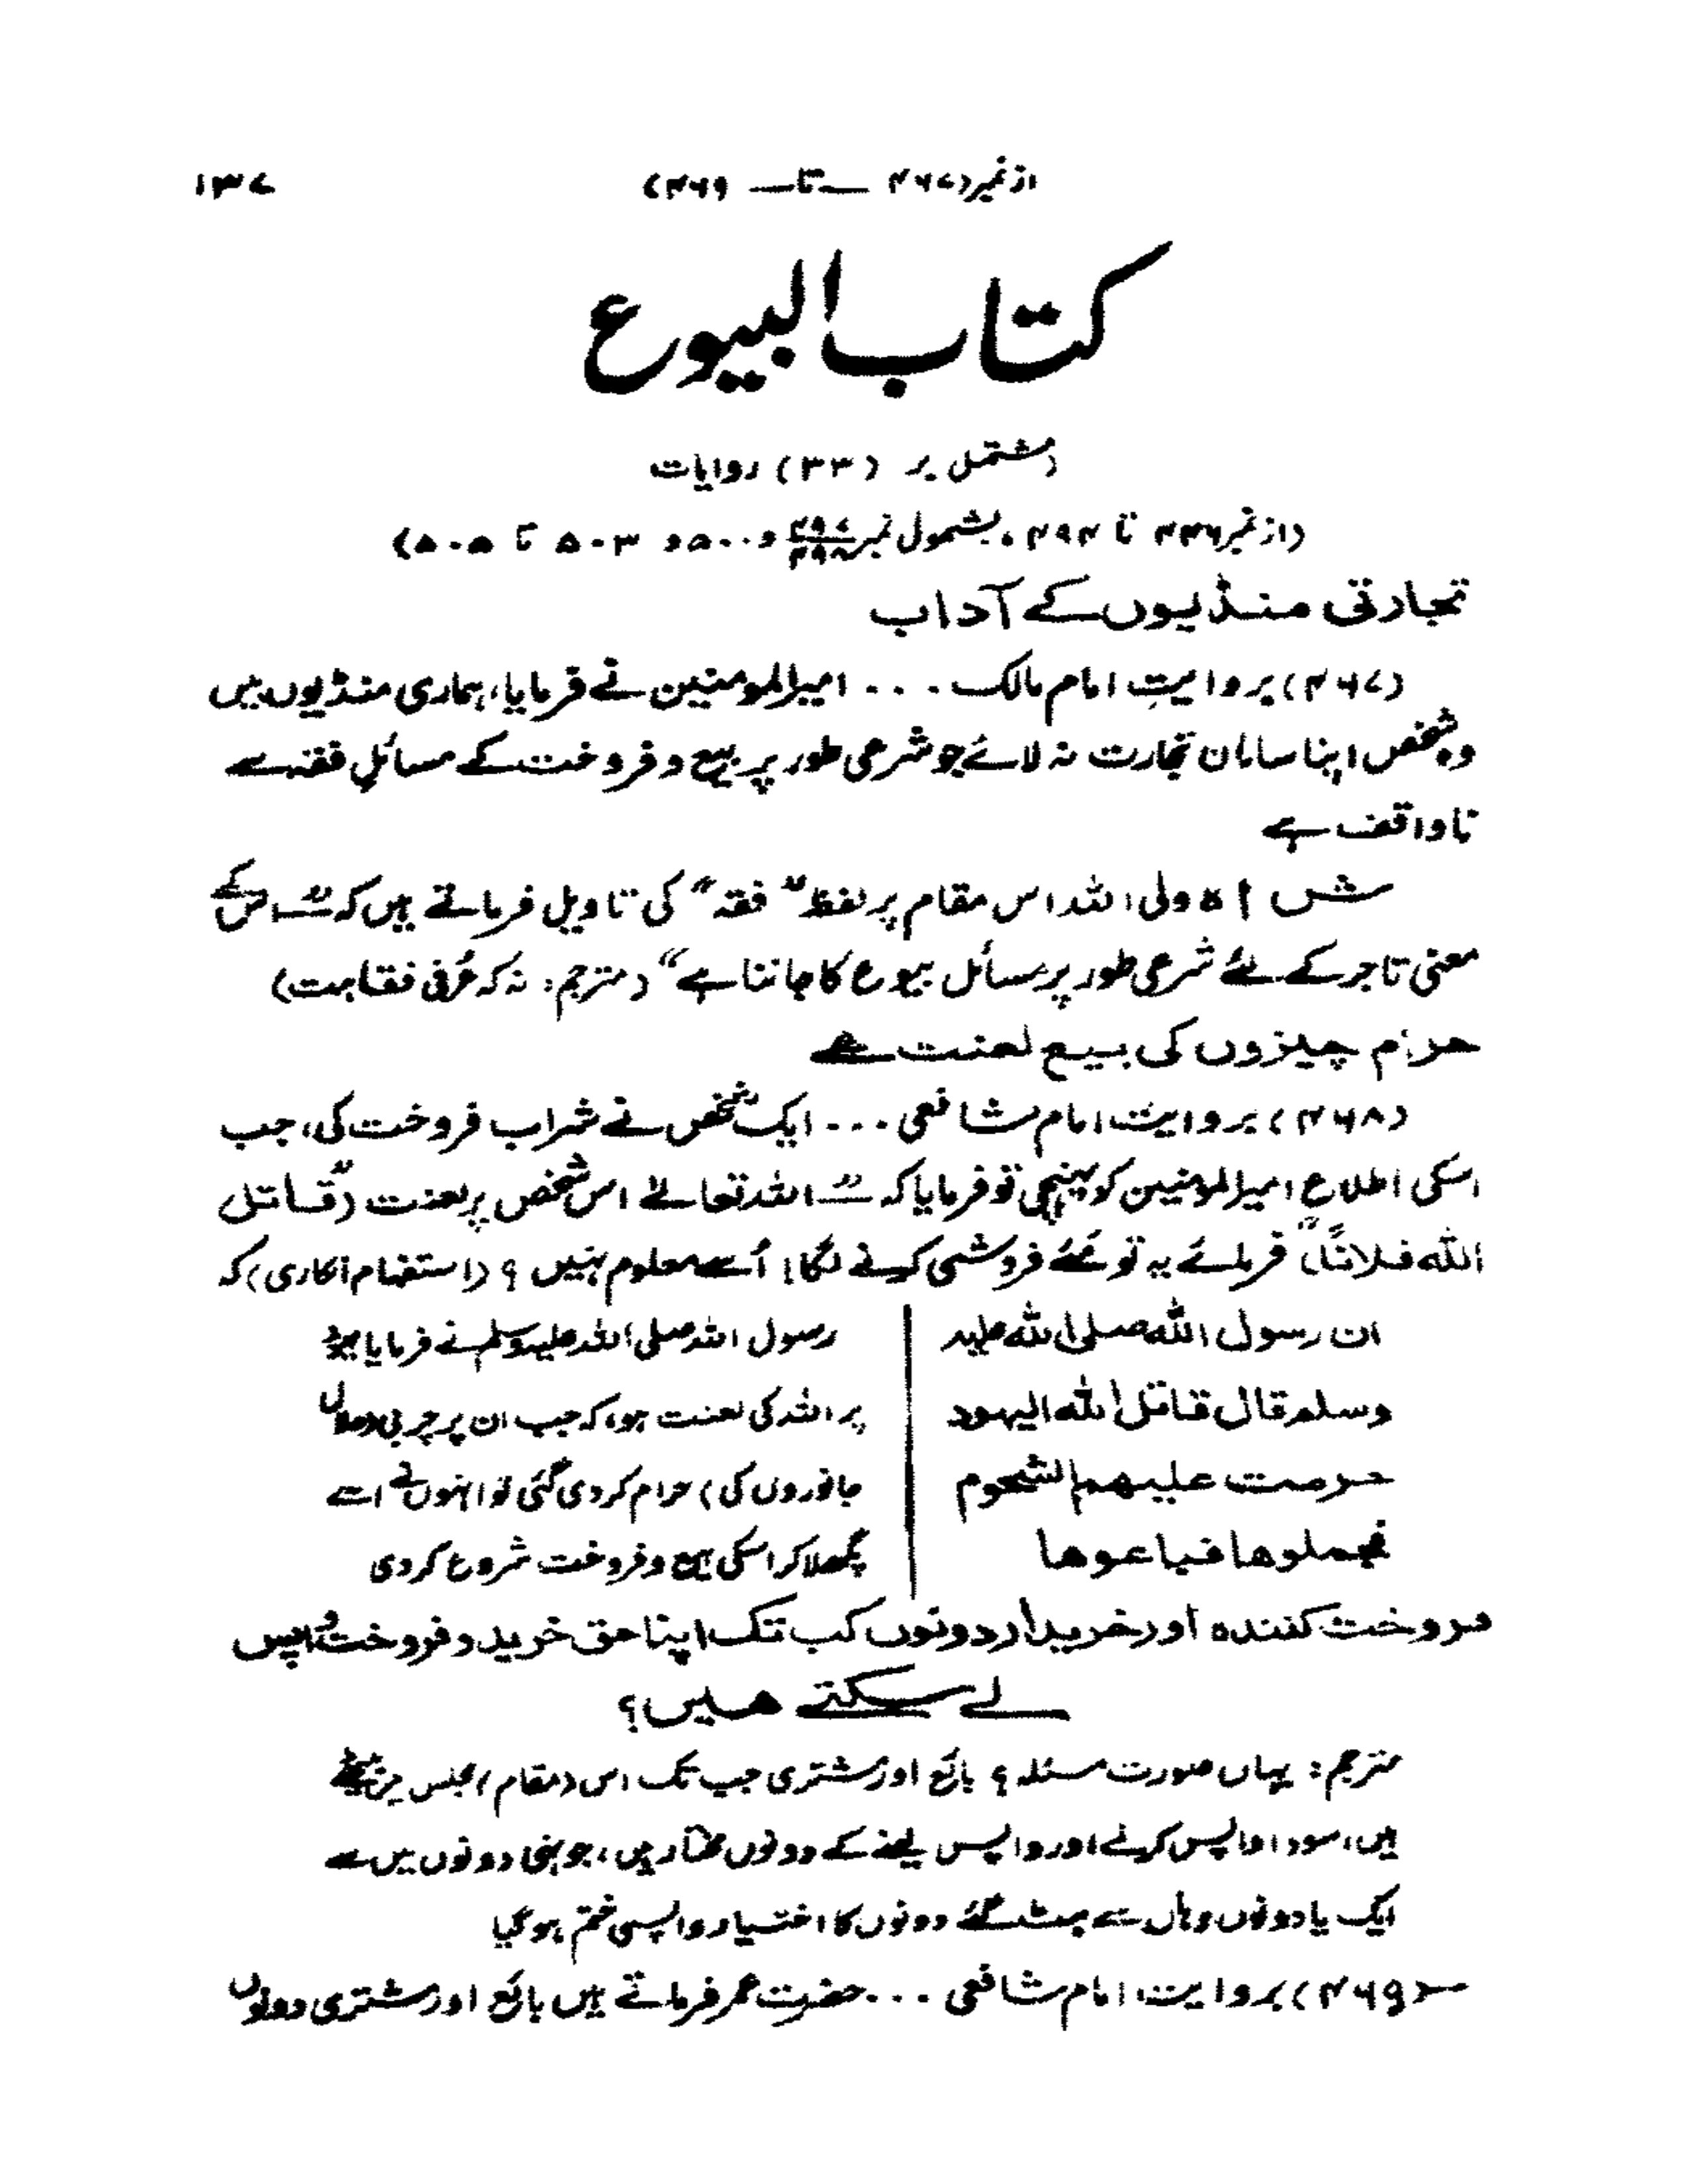 از نمبر (۴۶۷ — تا — ۴۶۹) ۱۳۷
کتاب البیوع
(مشتمل بر (۳۳) روایات
(از نمبر ۴۴۶ تا ۴۹۴، بشمول نمبر ۴۹۷/۴۹۸ و ۵۰۰ و ۵۰۳ تا ۵۰۵)
تجارتی منڈیوں کے آداب
(۴۶۷) بروایتِ امام مالک ... امیرالمومنین نے فرمایا، ہماری منڈیوں میں
وہ شخص اپنا سامان تجارت نہ لائے جو شرعی طور پر بیع و فروخت کے مسائلِ فقہ سے
ناواقف ہے
ش اہ ولی اللہ اس مقام پر لفظ "فقہ" کی تاویل فرماتے ہیں کہ "اس کے
معنی تاجر کے لئے شرعی طور پر مسائل بیوع کا جاننا ہے" (مترجم: نہ کہ عُرفی فقاہت)
حرام چیزوں کی بیع لعنت ہے
(۴۶۸) بروایت امام شافعی ... ایک شخص نے شراب فروخت کی، جب
اسکی اطلاع امیرالمومنین کو پہنچی تو فرمایا کہ "اللہ تعالےٰ اس شخص پر لعنت ("قاتل
اللہ فلاناً") فرمائے یہ تو مے فروشی کرنے لگا! اُسے معلوم نہیں ؟ (استفہام انکاری) کہ
ان رسول اللہ صلی اللہ علیہ
وسلم قال قاتل اللہ الیہود
حرمت علیہم الشحوم
فجملوھا فباعوھا
رسول اللہ صلی اللہ علیہ وسلم نے فرمایا یہود
پر اللہ کی لعنت ہو، کہ جب ان پر چربی (حلال
جانوروں کی) حرام کر دی گئی تو انہوں نے اسے
پگھلا کر اسکی بیع و فروخت شروع کر دی
فروخت کنندہ اور خریدار دونوں کب تک اپنا حق خرید و فروخت واپس
لے سکتے ہیں؟
مترجم: یہاں صورت مسئلہ ؟ بائع اور مشتری جب تک اس (مقام) مجلس میں بیٹھے
ہیں، سودا واپس کرنے اور واپس لینے کے دونوں مختار ہیں، جونہی دونوں میں سے
ایک یا دونوں وہاں سے ہٹ گئے دونوں کا اختیار واپسی ختم ہو گیا
(۴۶۹) بروایت امام شافعی ... حضرت عمر فرماتے ہیں بائع اور مشتری دونوں